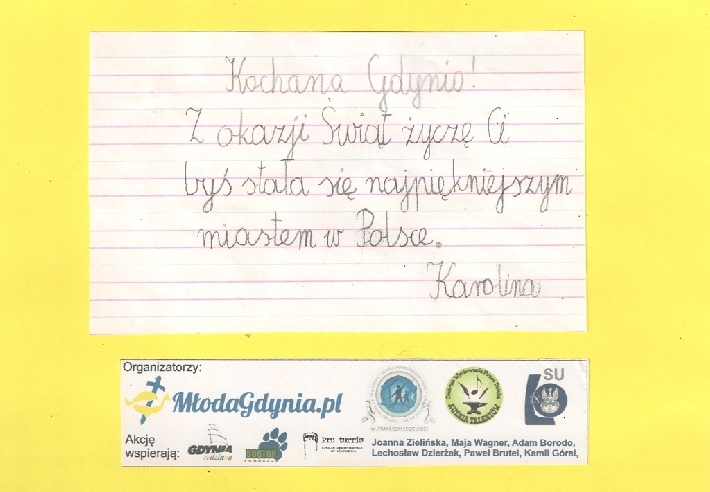 Kochana Gdynio!
Z okazji Świąt życzę Ci
byś stała się najpiękniejszym
miastem w Polsce.
Karolina
Organizatorzy:
MłodaGdynia.pl
SU
Akcję
wspierają:
GDYNIA
rodzinna
Pro turris
Joanna Zielińska, Maja Wagner, Adam Borodo,
Lechosław Dzierżak, Paweł Brutel, Kamil Góral,